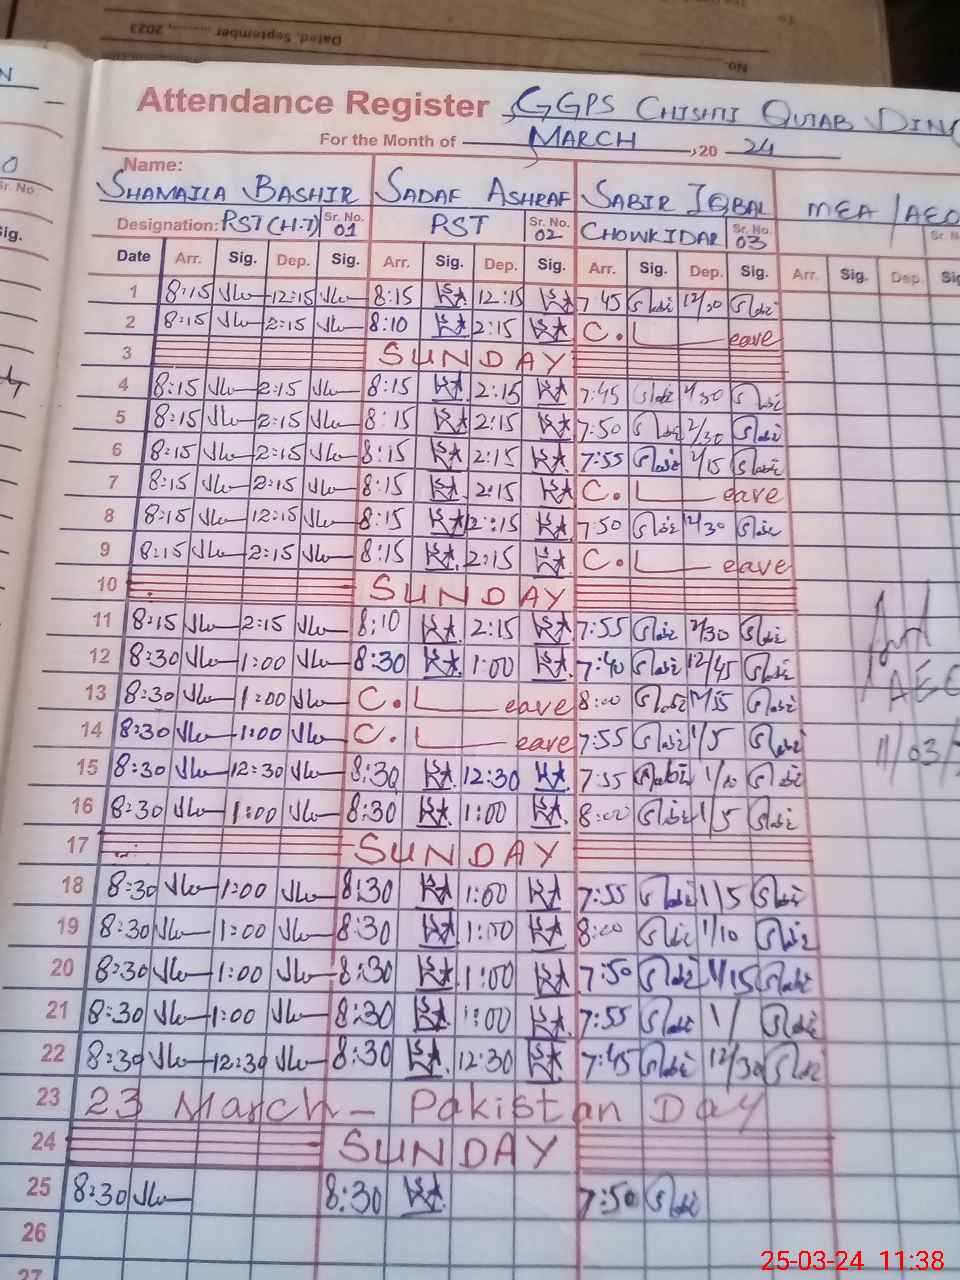 Dated, September ........, 2023
No.
To
Attendance Register GGPS CHISHTI QUTAB DIN
For the Month of MARCH, 20 24
Name:
SHAMAILA BASHIR SADAF ASHRAF SABIR IQBAL MEA / AEO
Designation: PST (H.T) Sr. No. 01 PST Sr. No. 02 CHOWKIDAR Sr. No. 03
Date Arr. Sig. Dep. Sig. Arr. Sig. Dep. Sig. Arr. Sig. Dep. Sig. Arr. Sig. Dep. Sig
1 8:15 12:15 8:15 12:15 7:45 12/30
2 8:15 2:15 8:10 2:15 C. Leave
3 SUNDAY
4 8:15 2:15 8:15 2:15 7:45
5 8:15 2:15 8:15 2:15 7:50 2/30
6 8:15 2:15 8:15 2:15 7:55
7 8:15 2:15 8:15 2:15 C. Leave
8 8:15 12:15 8:15 2:15 7:50
9 8:15 2:15 8:15 2:15 C. Leave
10 SUNDAY
11 8:15 2:15 8:10 2:15 7:55 2/30
12 8:30 1:00 8:30 1:00 7:40 12/45
13 8:30 1:00 C. Leave 8:00
14 8:30 1:00 C. Leave 7:55 1/5
15 8:30 12:30 8:30 12:30 7:55 1/10
16 8:30 1:00 8:30 1:00 8:00 1/5
17 SUNDAY
18 8:30 1:00 8:30 1:00 7:55 1/5
19 8:30 1:00 8:30 1:00 8:00 1/10
20 8:30 1:00 8:30 1:00 7:50 1/15
21 8:30 1:00 8:30 1:00 7:55 1/
22 8:30 12:30 8:30 12:30 7:45 12/30
23 23 March - Pakistan Day
24 SUNDAY
25 8:30 8:30 7:50
26
27
AEO
11/03/
25-03-24 11:38